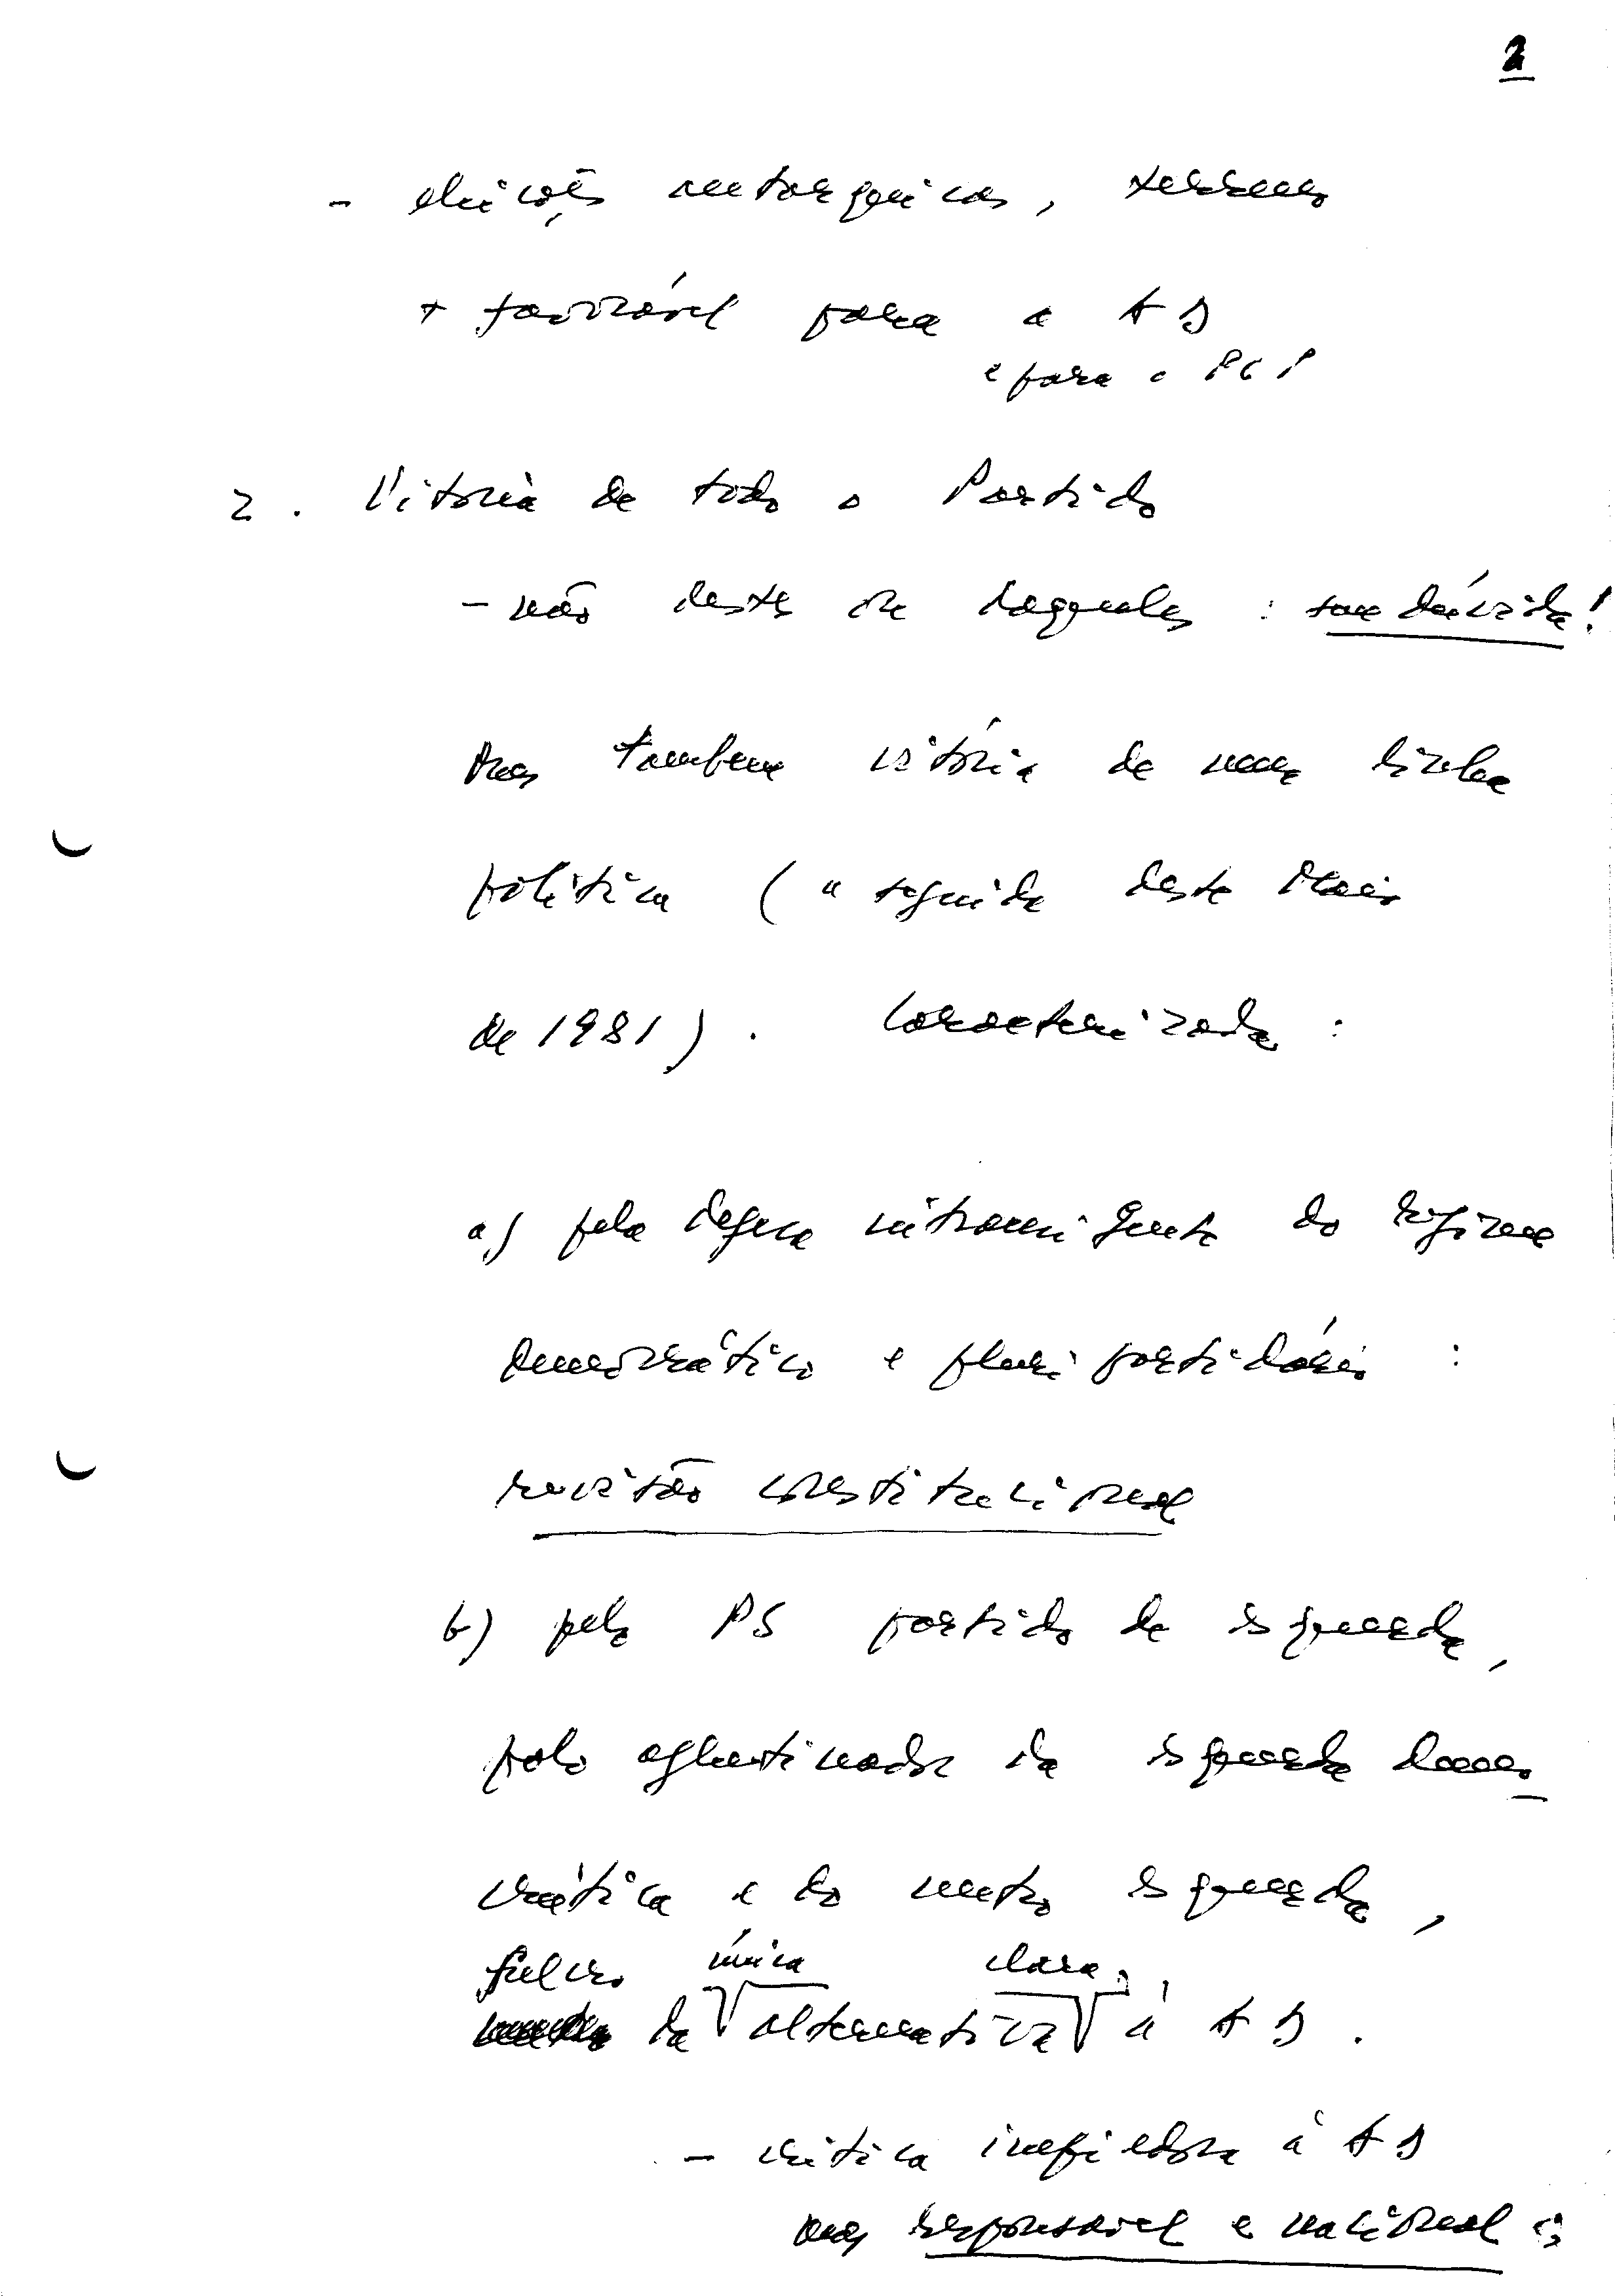 2
- eleições autárquicas, terreno
+ favorável para a AD
e para o PCP
2. Vitória de todo o Partido
- não destes ou daqueles : sem dúvida!
Mas tambem vitória de uma linha
política (a seguida deste Maio
de 1981). Caracterizada :
a) pela defesa intransigente do regime
democrático e pluripartidário :
revisão constitucional
b) pelo PS partido de esquerda,
polo aglutinador da esquerda demo-
crática e do centro esquerda,
fulcro única clara,
da alternativa à AD.
- crítica impiedosa à AD
mas responsável e nacional